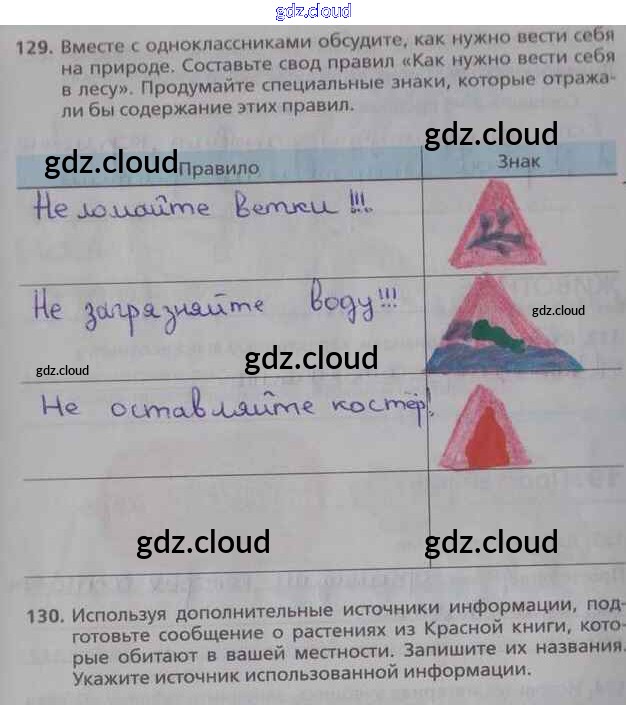 gdz.cloud
129. Вместе с одноклассниками обсудите, как нужно вести себя
на природе. Составьте свод правил «Как нужно вести себя
в лесу». Продумайте специальные знаки, которые отража-
ли бы содержание этих правил.
gdz.cloud
gdz.cloud
Правило
Знак
Не ломайте ветки !!!
Не загрязняйте воду!!!
gdz.cloud
gdz.cloud
gdz.cloud
Не оставляйте костёр!
gdz.cloud
gdz.cloud
130. Используя дополнительные источники информации, под-
готовьте сообщение о растениях из Красной книги, кото-
рые обитают в вашей местности. Запишите их названия.
Укажите источник использованной информации.